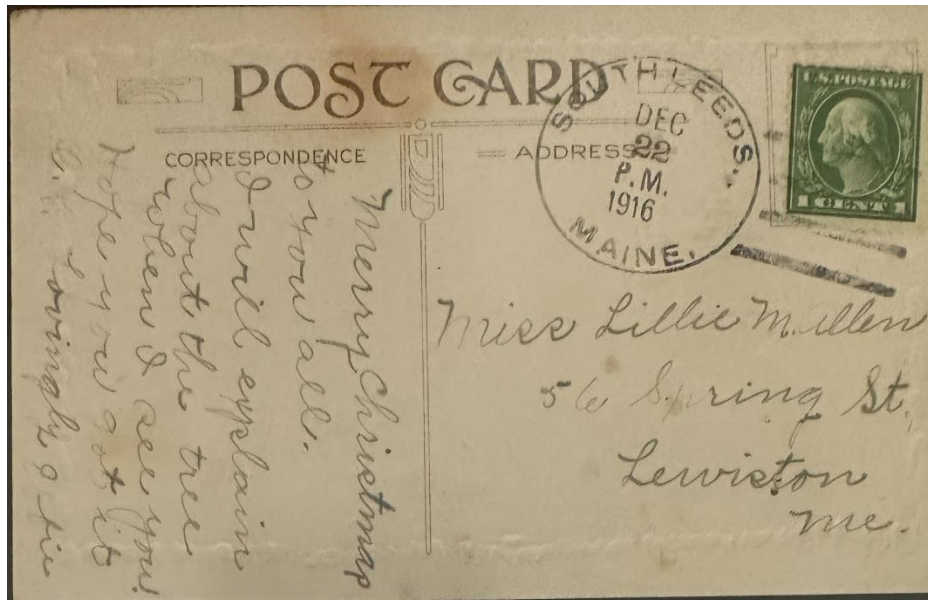 POST CARD
CORRESPONDENCE
ADDRESS
SOUTH LEEDS.
DEC
22
P.M.
1916
MAINE.
U.S. POSTAGE
1 CENT 1
Merry Christmas
to you all.
I will explain
about the tree
when I see you.
Hope you got it
Lovingly
Miss Lillie M. Allen
56 Spring St.
Lewiston
Me.